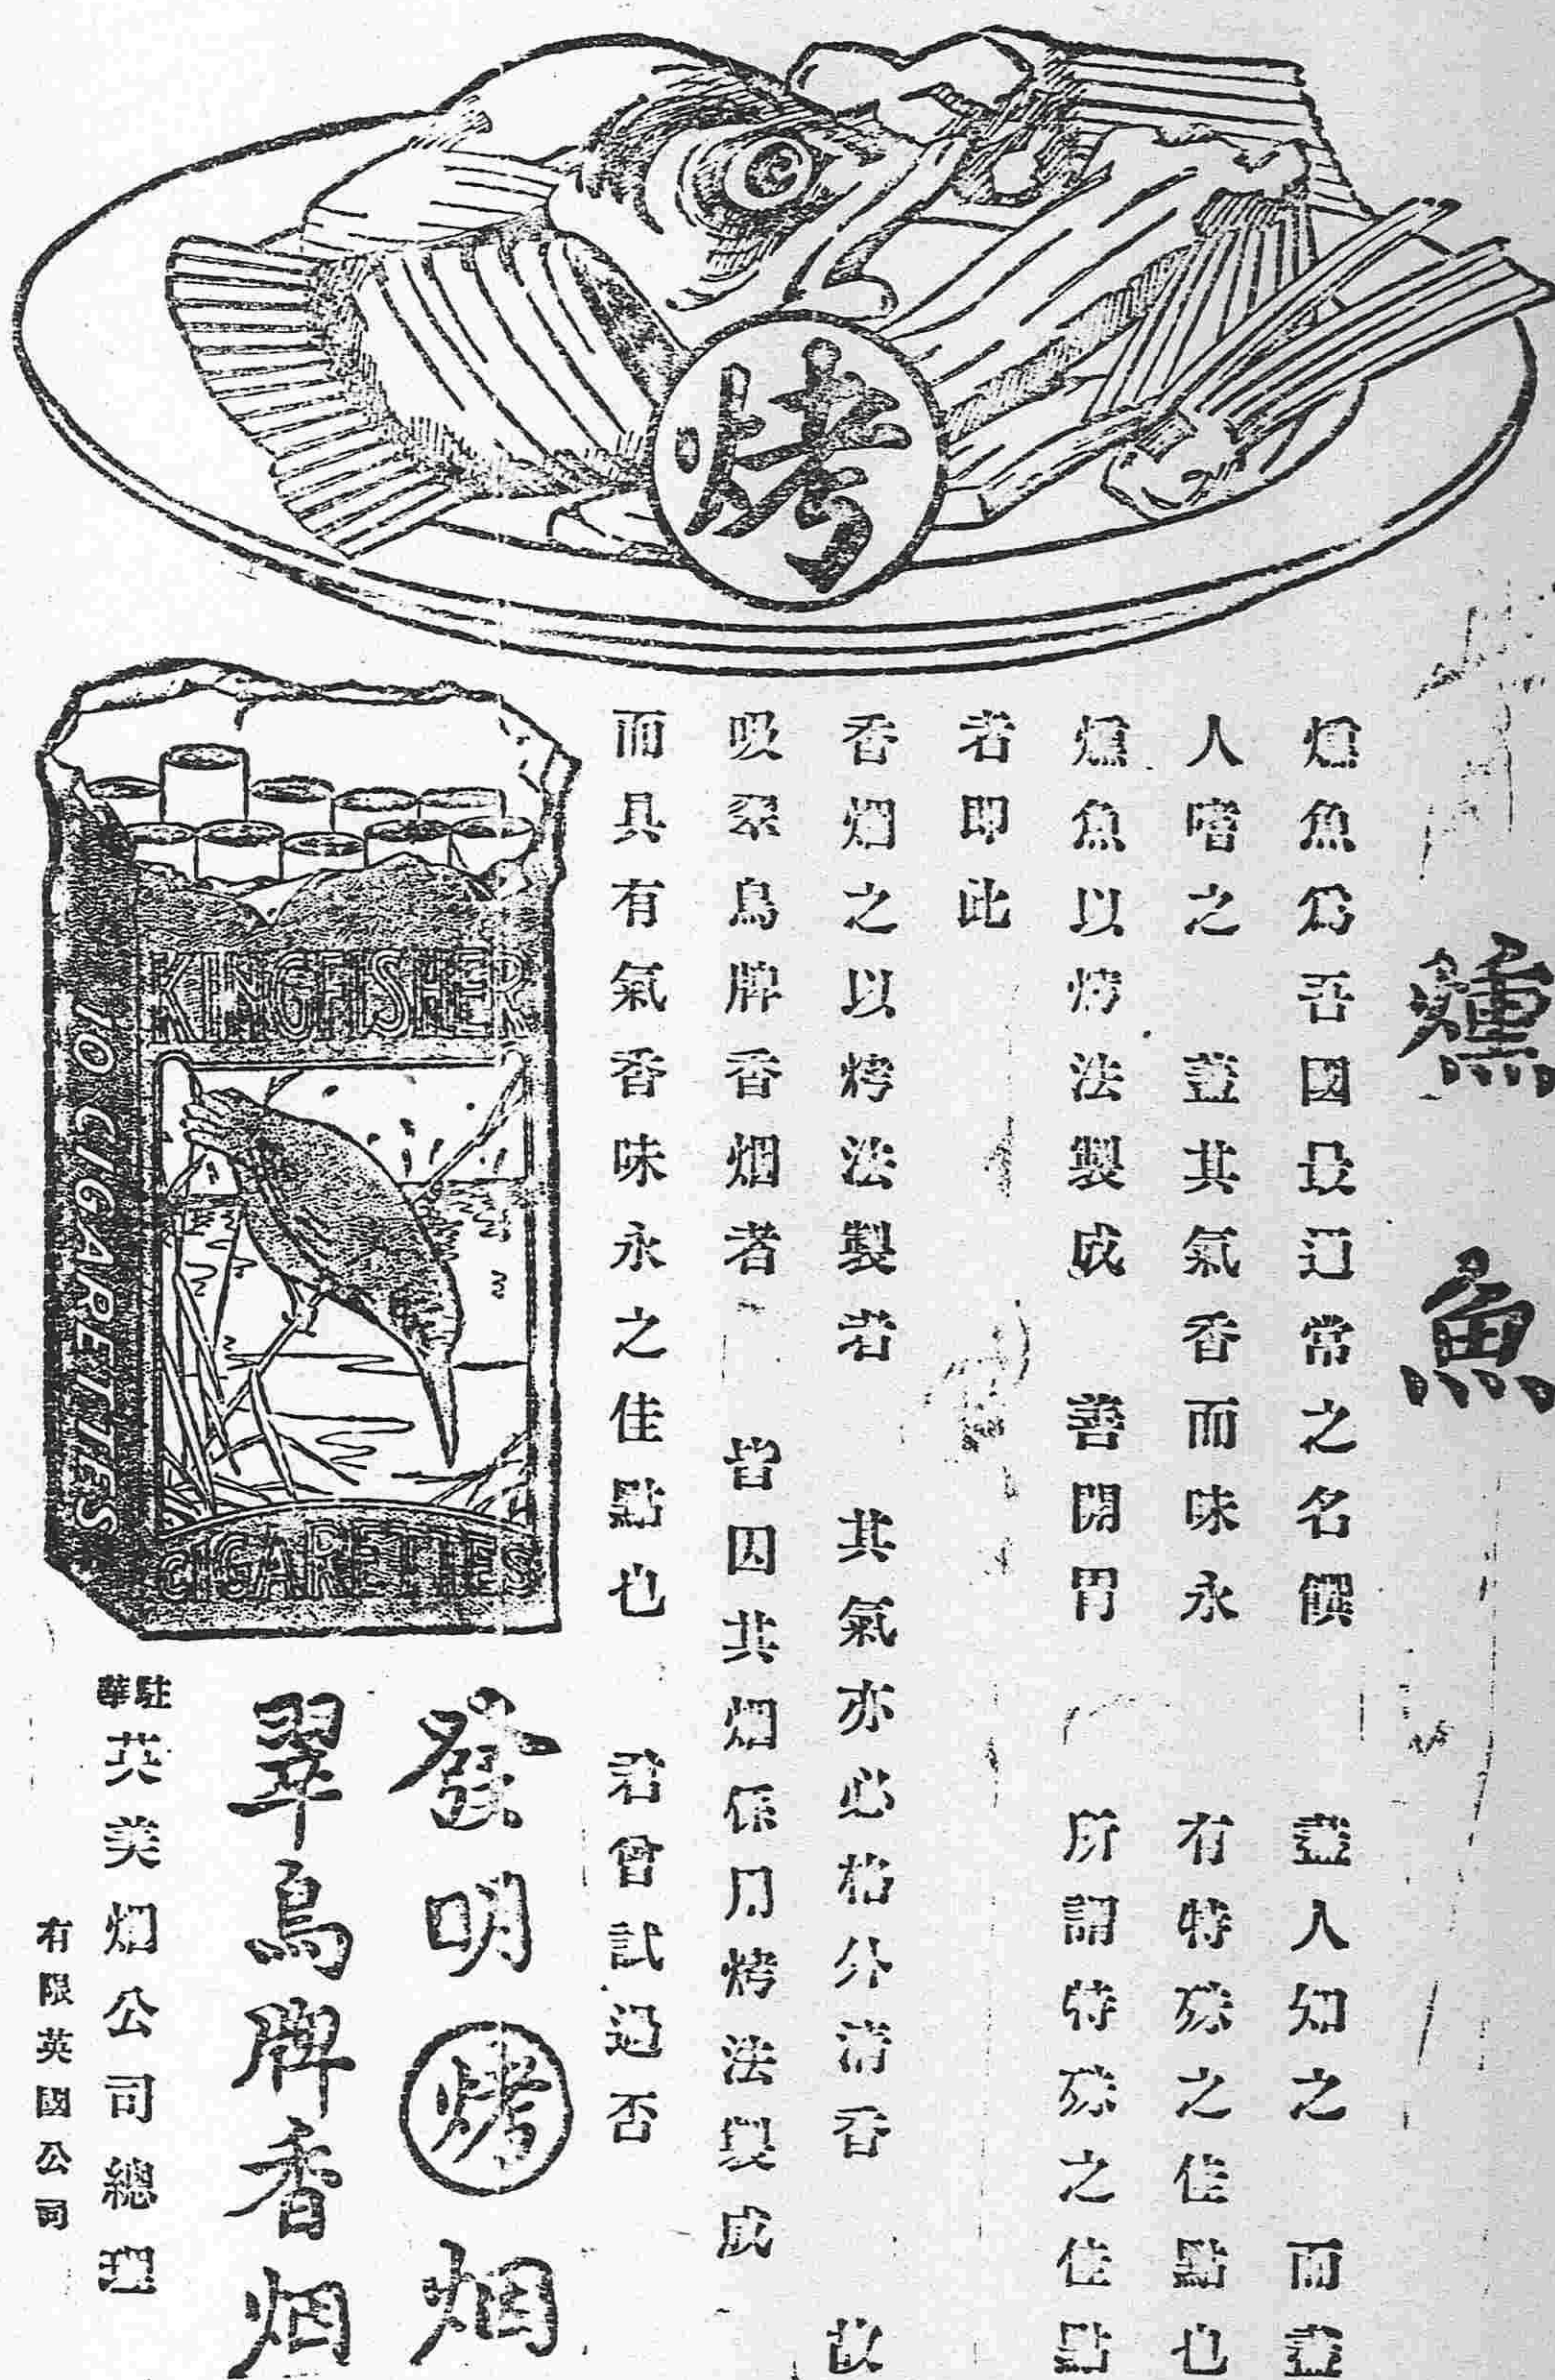 烤
燻魚
燻魚爲吾國最通常之名饌 盡人知之 而盡
人嗜之 蓋其氣香而味永 有特殊之佳點也
燻魚以烤法製成 善開胃 所謂特殊之佳點
者即此
香烟之以烤法製者 其氣亦必格外清香 故
吸翠鳥牌香烟者 皆因其烟係用烤法製成
而具有氣香味永之佳點也 君曾試過否
KINGFISHER
CIGARETTES
10 CIGARETTES
發明烤烟
翠鳥牌香烟
駐華英美烟公司總理
有限英國公司